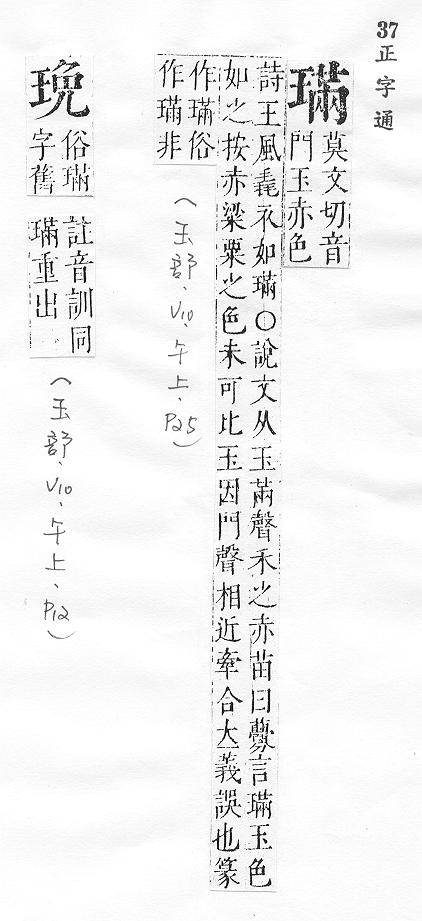 37正字通
璊
莫文切音
門玉赤色
詩王風毳衣如璊〇說文从玉㒼聲禾之赤苗曰虋言璊玉色
如之按赤粱粟之色未可比玉因門聲相近牽合大義誤也篆
作璊俗
作璊非
(玉部、V10、午上、P25)
俗璊
字舊
註音訓同
璊重出
(玉部、V10、午上、P12)